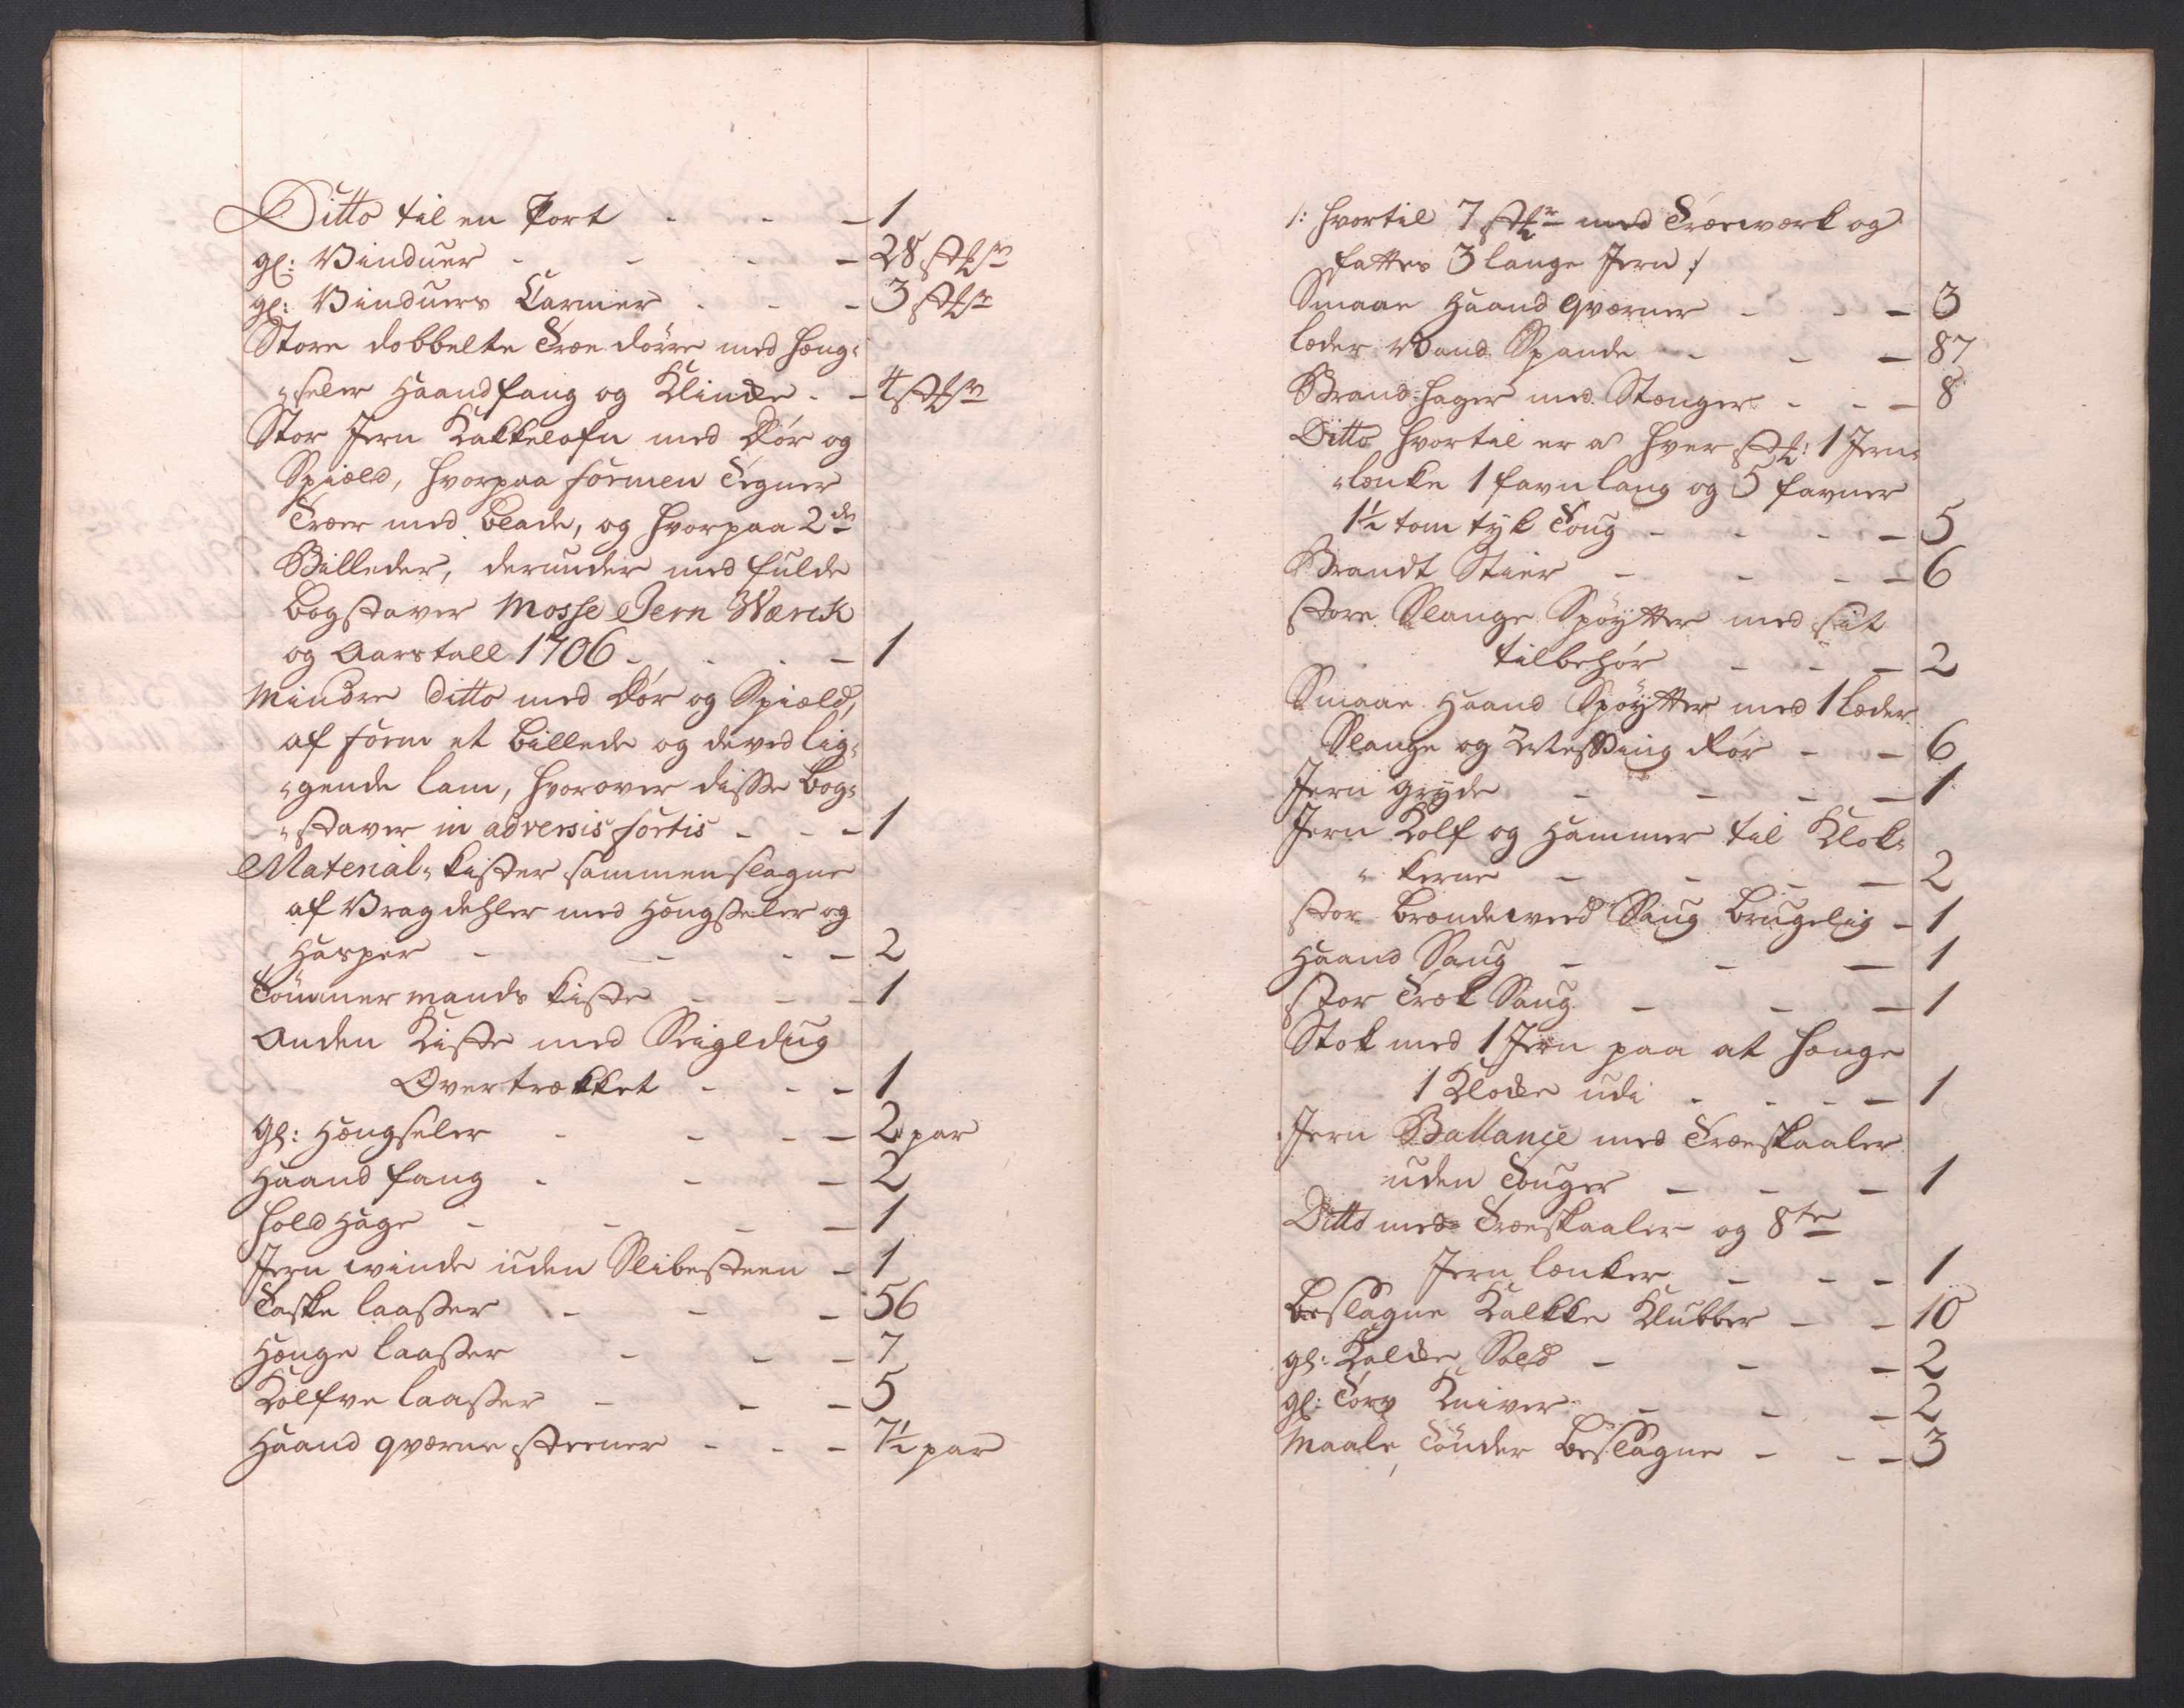 Ditto til en Port - - - 1
gl: Vinduer - - - - 28 stkr
gl: Vinduers Karmer - - - 3 stkr
Store dobbelte Træe dörre med hæng-
seler Haandfang og Klincke - - 4 stkr
Stor Jern Kakkelofn med Rör og
Spiæld, hvorpaa formen Tegner
Træer med blade, og hvorpaa 2de
Billeder, derunder med fulde
bogstaver Mosse Jern Værck
og Aarstall 1706 - - - - 1
Mindre ditto med Rör og Spiæld,
af form et billede og derved lig-
gende lam, hvorover disse bog-
staver in adversis fortis - - - 1
Material-kister sammenslagne
af Vragdehler med Hængsteler og
Hasper - - - - 2
Tömmermands kiste - - - 1
Anden Kiste med Seigldug
Overtrækket - - - 1
Gl: Hængseler - - - - 2 par
Haandfang - - - 2
hold Hage - - - - 1
Jern winde uden Slibesteen - 1
Taske laaser - - - 56
Hænge laaser - - - 7
Kolfve laaser - - - 5
Haand qværne steener - - - 7½ par
/: hvortil 7 stkr med Træeværk og
fattes 3 lange Jern :/
Smaae Haand qværner - - - 3
læder Vand Spande - - - 87
Brand-hager med Stænger - - - 8
Ditto hvortil er a hver stk: 1 Jern-
lænke 1 favn lang og 5 favner
1½ tom tyk Toug - - - - 5
Brandt Stier - - - - 6
store Slange Spöytter med sit
tilbehör - - - 2
Smaae Haand Spöytter med 1 læder
Slange og Messing Rör - - 6
Jern gryde - - - - 1
Jern Kolf og Hammer til Klok-
kerne - - - - 2
stor brændeveed Saug brugelig - 1
Haand Saug - - - 1
stor Træk Saug - - - 1
Stok med 1 Jern paa at hænge
1 Klocke udi - - - - 1
Jern Ballance med Træeskaaler
uden Touger - - - 1
Ditto med Træeskaaler og 8te
Jern lænker - - - 1
beslagne Kalkke Klubber - - 10
gl: Kalcke Sold - - - 2
gl: Torv Kniver - - - 2
Maale Tönder beslagne - - - 3